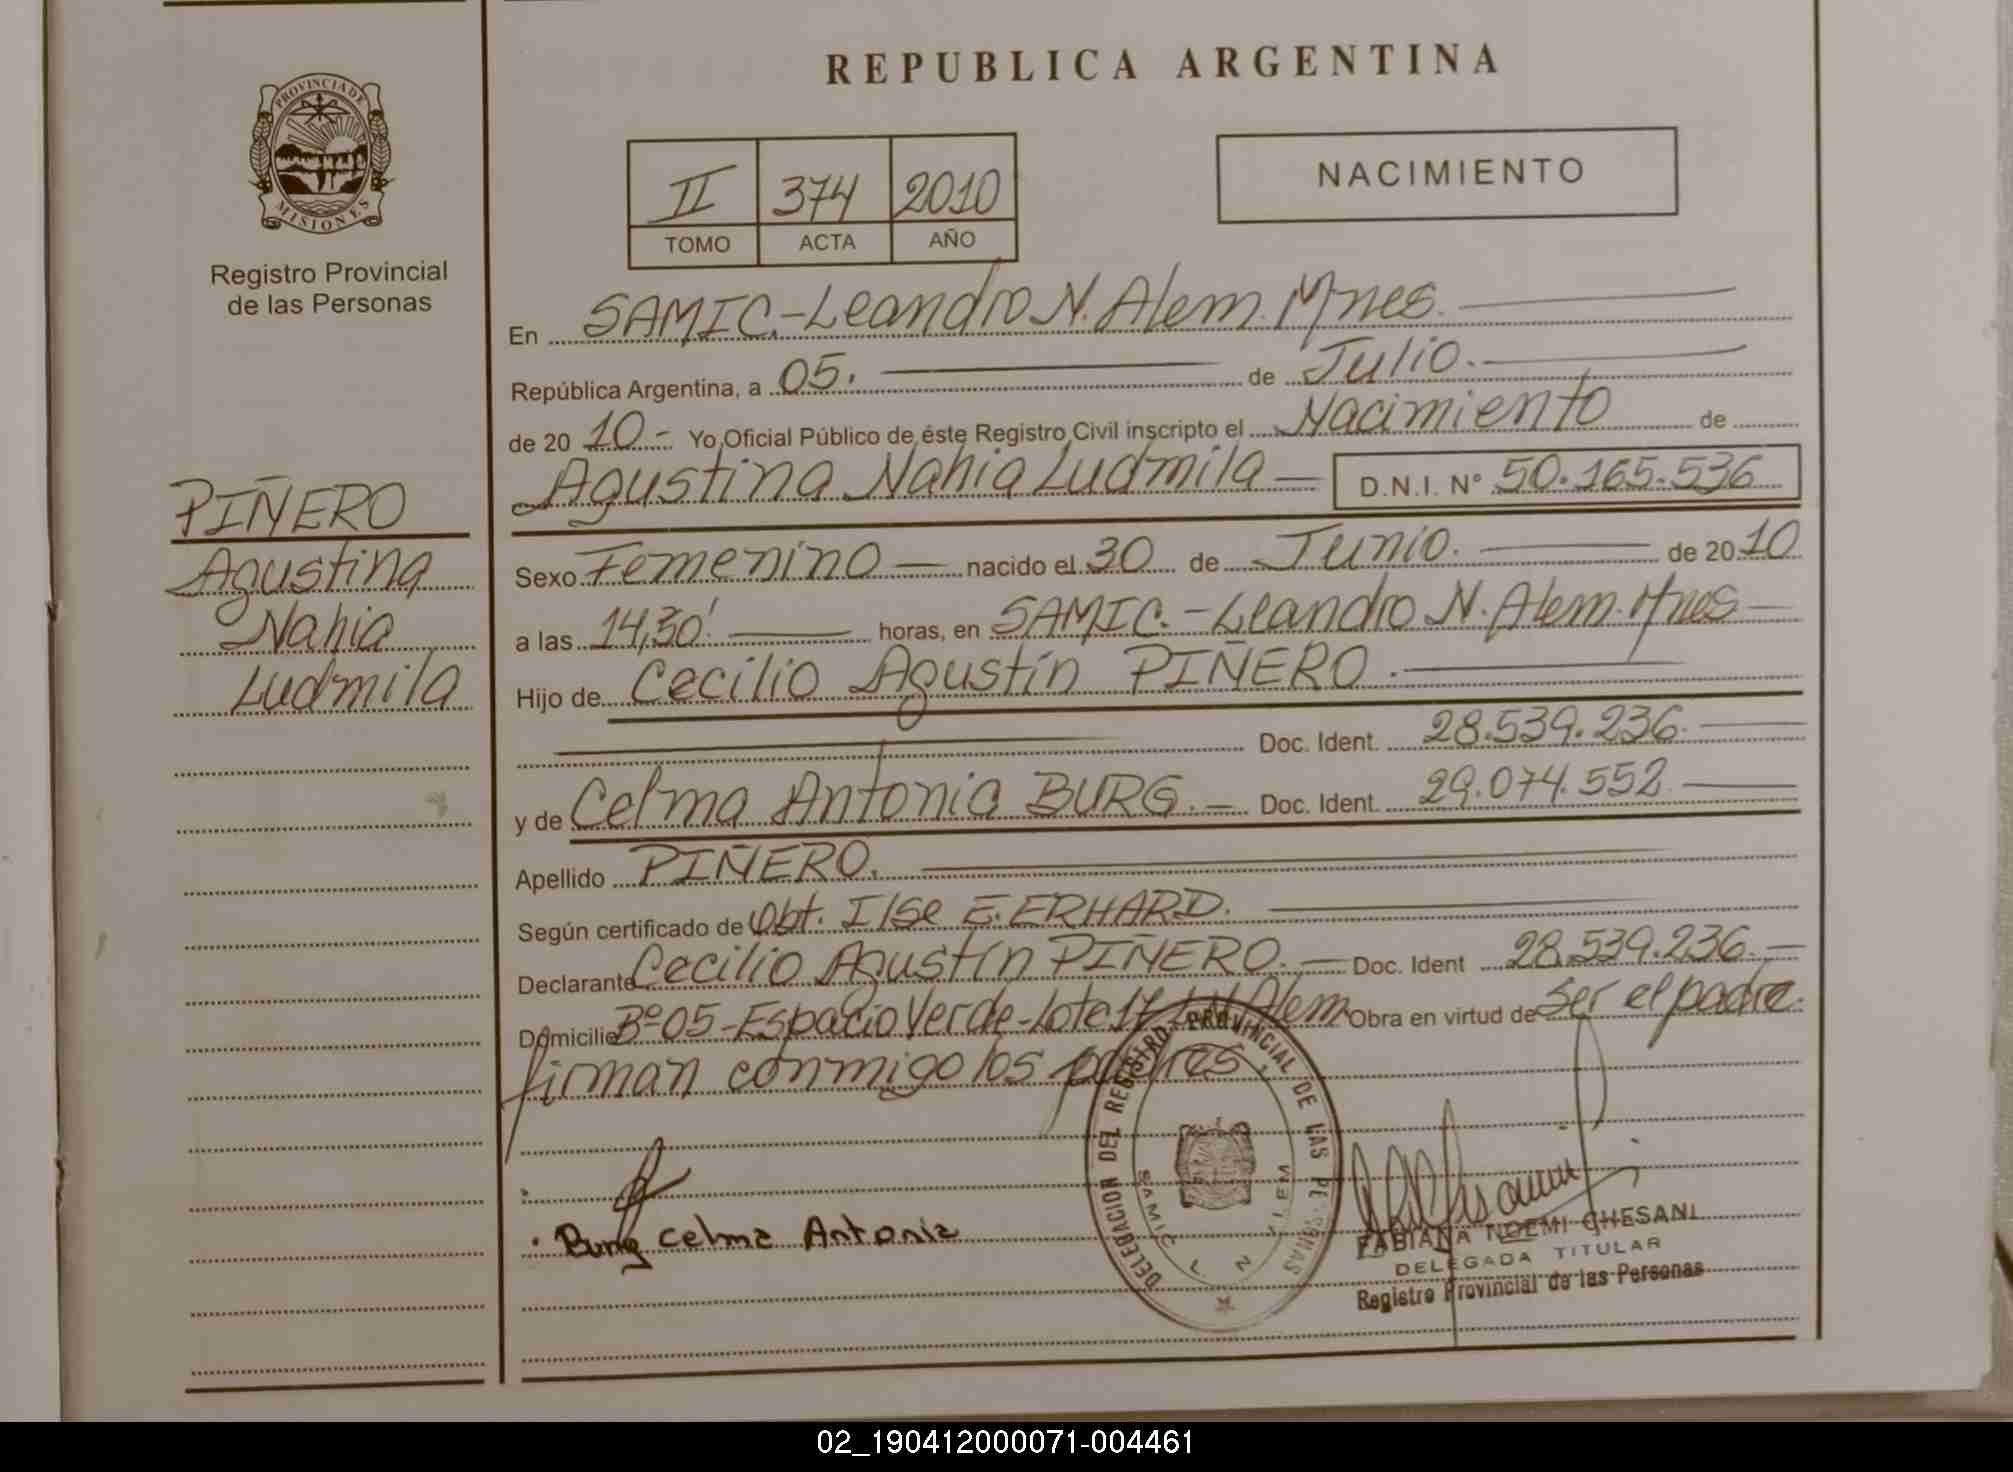 REPUBLICA ARGENTINA
PROVINCIA DE
MISIONES
Registro Provincial
de las Personas
II 374 2010
TOMO ACTA AÑO
NACIMIENTO
En SAMIC.-Leandro N. Alem. Mnes.
República Argentina, a 05. de Julio.
de 20 10.- Yo Oficial Público de éste Registro Civil inscripto el Nacimiento de
Agustina Nahia Ludmila D.N.I. N° 50.165.536
PIÑERO
Agustina
Nahia
Ludmila
Sexo Femenino nacido el 30 de Junio. de 20 10
a las 14,30' horas, en SAMIC.-Leandro N. Alem. Mnes
Hijo de Cecilio Agustín PIÑERO.
Doc. Ident. 28.539.236.
y de Celma Antonia BURG. Doc. Ident. 29.074.552
Apellido PIÑERO.
Según certificado de Obt. Ilse E. ERHARD.
Declarante Cecilio Agustín PIÑERO. Doc. Ident 28.539.236.
Domicilio Bº 05-Espacio Verde-Lote 17 L.N. Alem Obra en virtud de ser el padre.
firman conmigo los padres.
Burg Celma Antonia
DELEGACION DEL REGISTRO PROVINCIAL DE LAS PERSONAS
SAMIC L N ALEM
FABIANA NOEMI GHESANI
DELEGADA TITULAR
Registro Provincial de las Personas
02_190412000071-004461